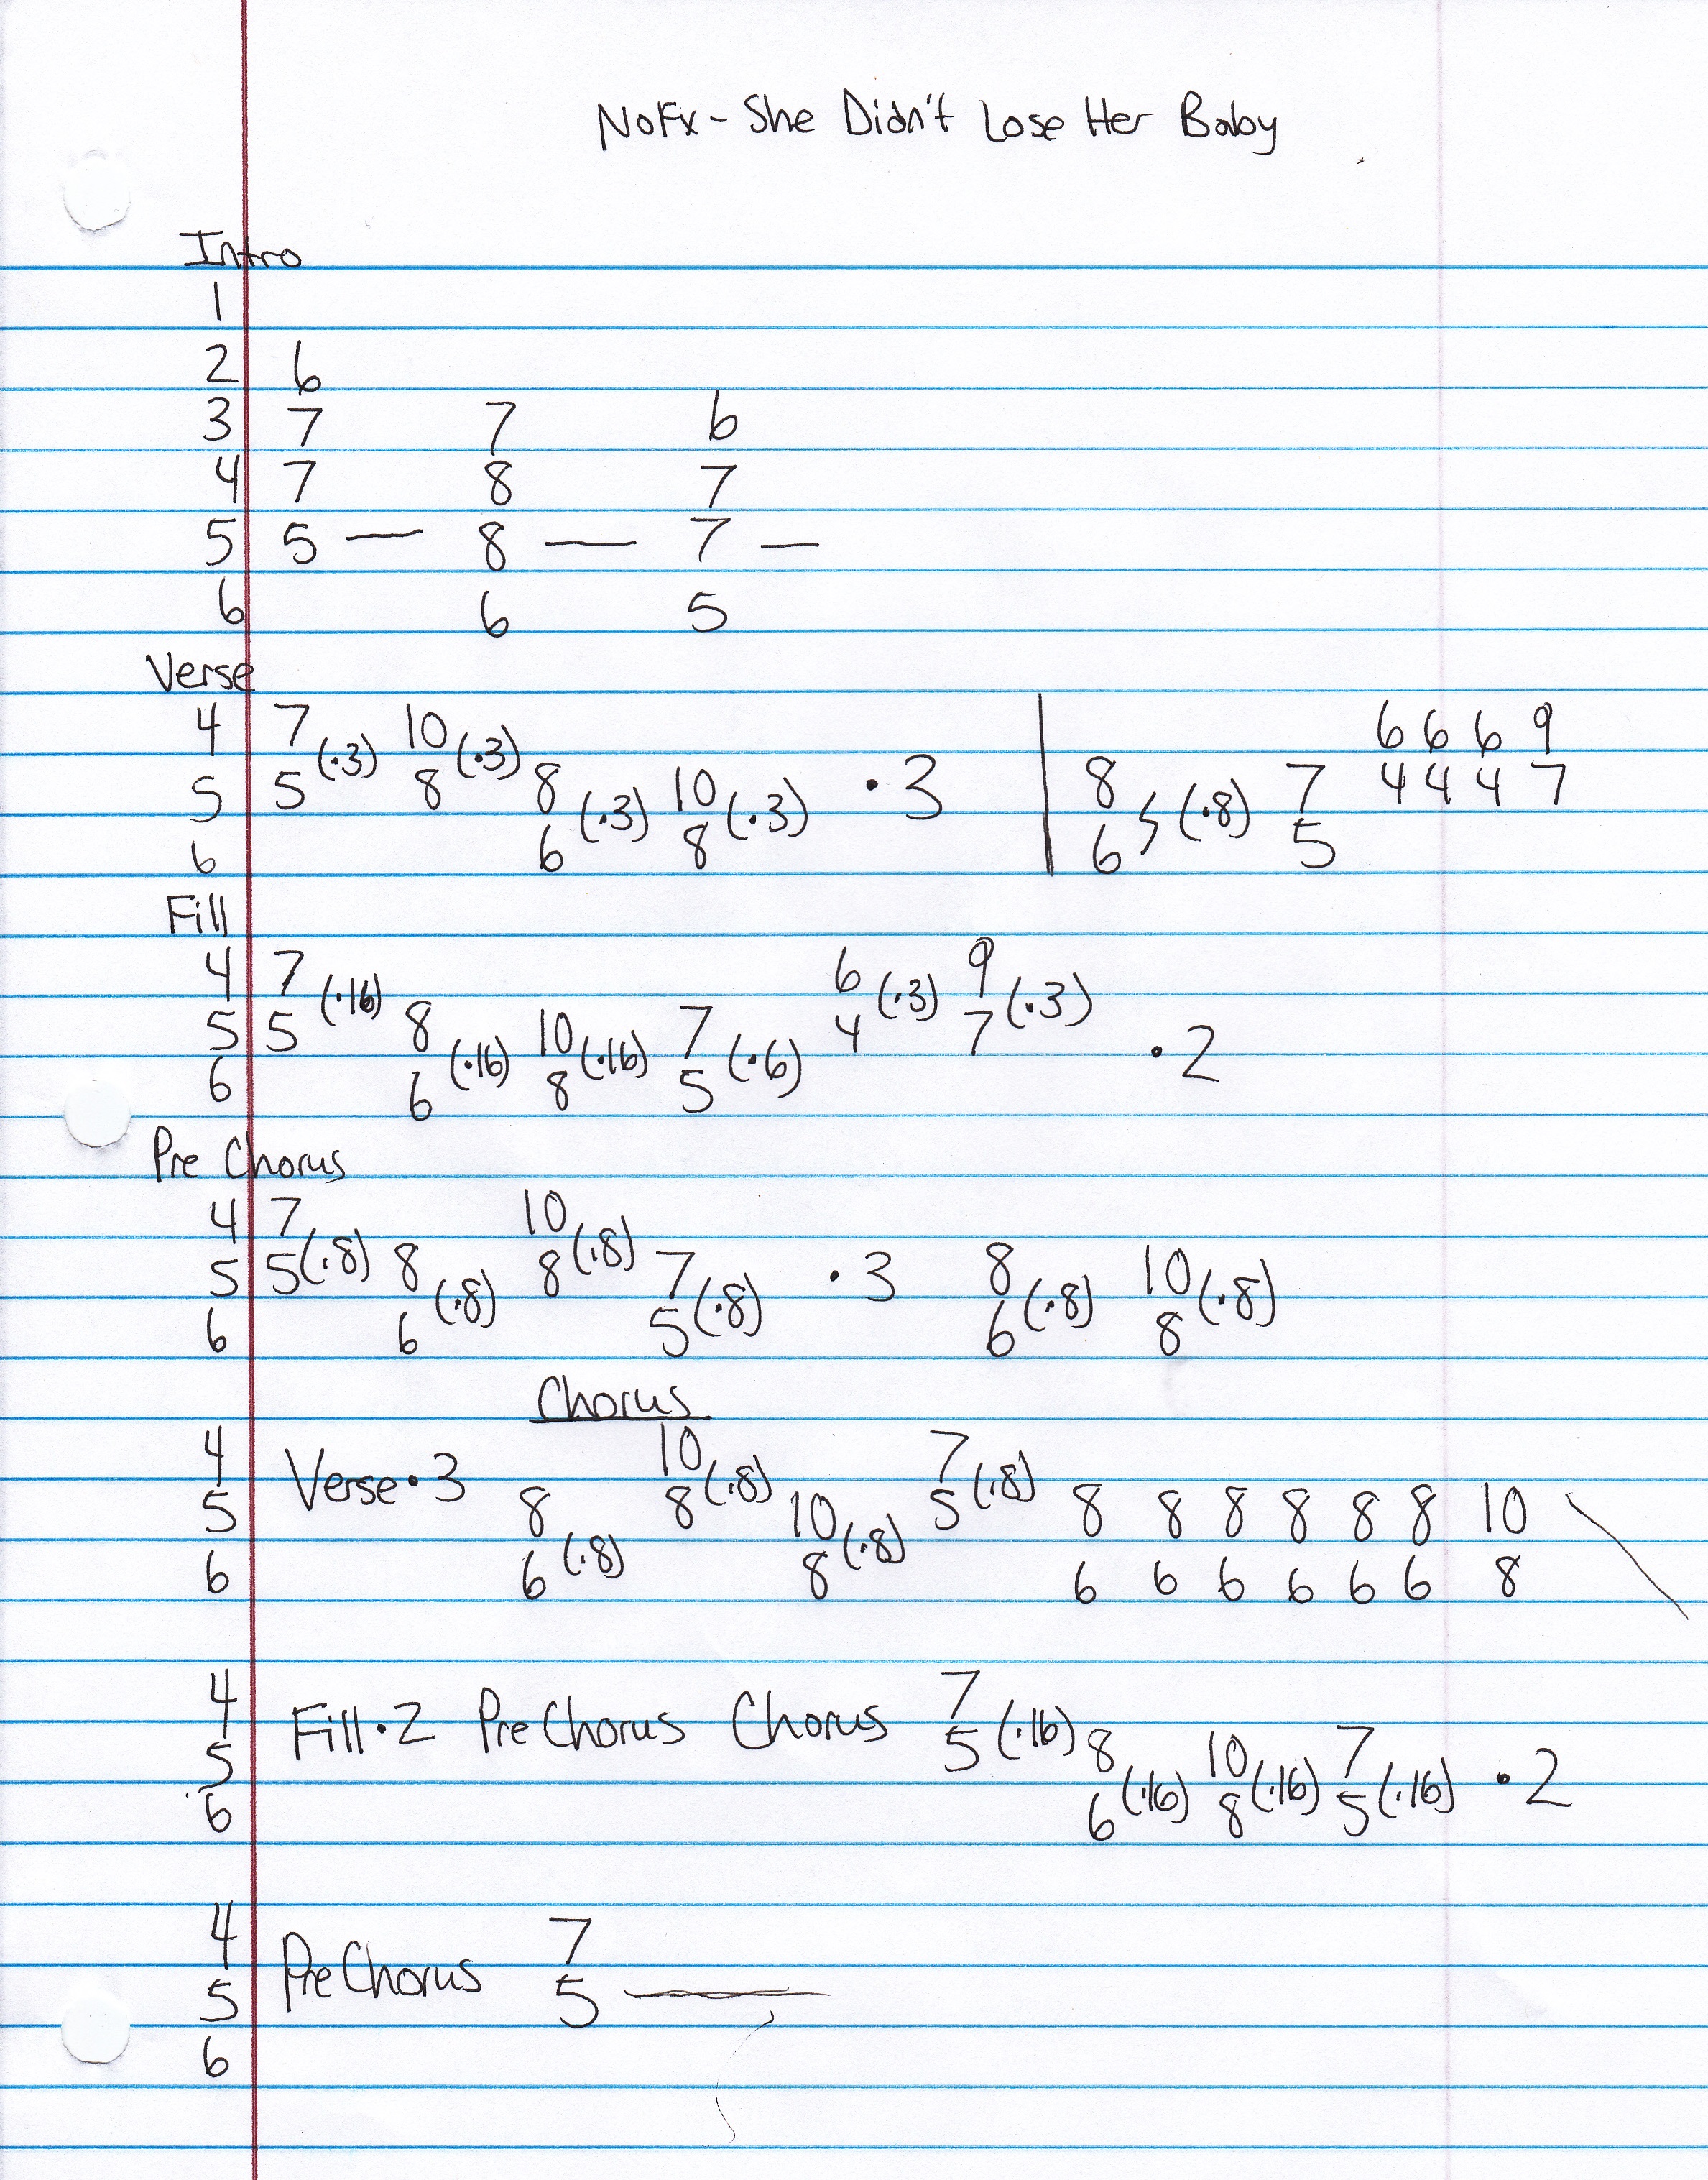 NoFx - She Didn't Lose Her Baby
Intro
1
2 6
3 7 7 6
4 7 8 7
5 5 — 8 — 7 —
6 6 5
Verse
4 7 (·3) 10 (·3) 6 6 6 9
5 5 8 8 (·3) 10 (·3) ·3 | 8 (·8) 7 4 4 4 7
6 6 8 6 5
Fill
4 7 (·16) 6 (·3) 9 (·3)
5 5 8 (·16) 10 (·16) 7 (·6) 4 7 ·2
6 6 8 5
Pre Chorus
4 7 10
5 5 (·8) 8 (·8) 8 (·8) 7 (·8) ·3 8 (·8) 10 (·8)
6 6 5 6 8
Chorus
4 10 7
5 Verse·3 8 8 (·8) 10 5 (·8) 8 8 8 8 8 8 10 \
6 6 (·8) 8 (·8) 6 6 6 6 6 6 8
4 7
5 Fill·2 PreChorus Chorus 5 (·16) 8 10 7 ·2
6 6 (·16) 8 (·16) 5 (·16)
4 7
5 PreChorus 5 —
6